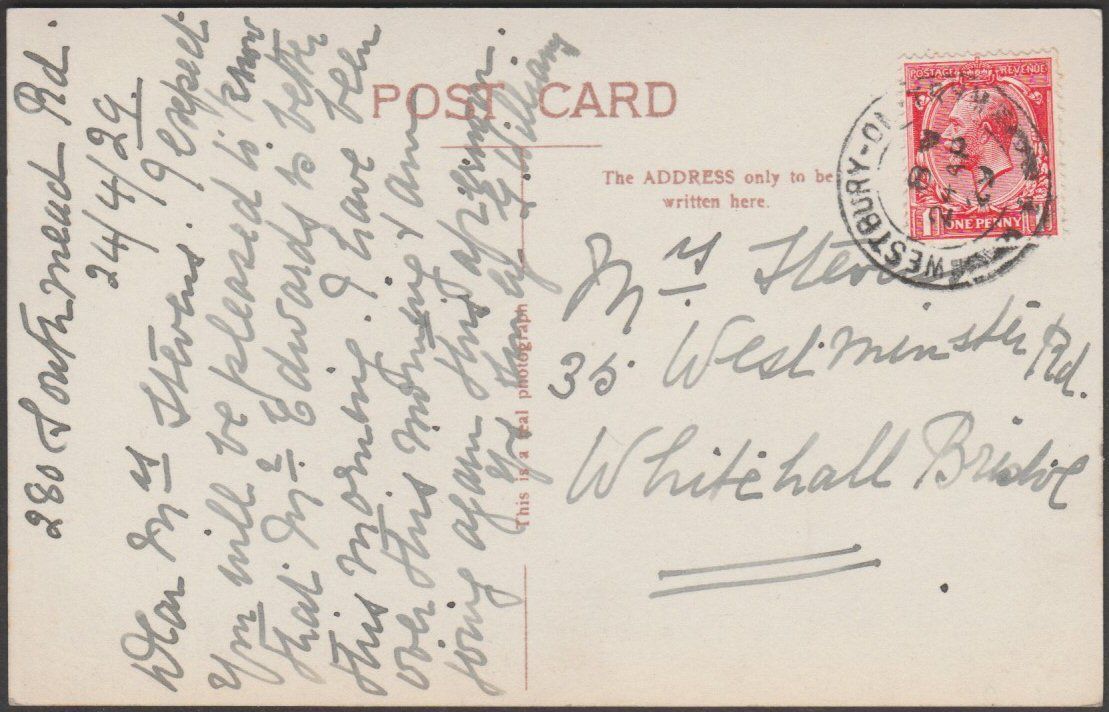 POST CARD
The ADDRESS only to be
written here.
This is a real photograph
POSTAGE REVENUE
ONE PENNY
WESTBURY-O
280 Southmead Rd.
24/4/29.
Dear Mrs Stevens. I expect
you will be pleased to know
that Mr Edwards is better
this morning. I have been
over this morning & am
going again this afternoon.
Mrs Steven
35 Westminster Rd.
Whitehall Bristol